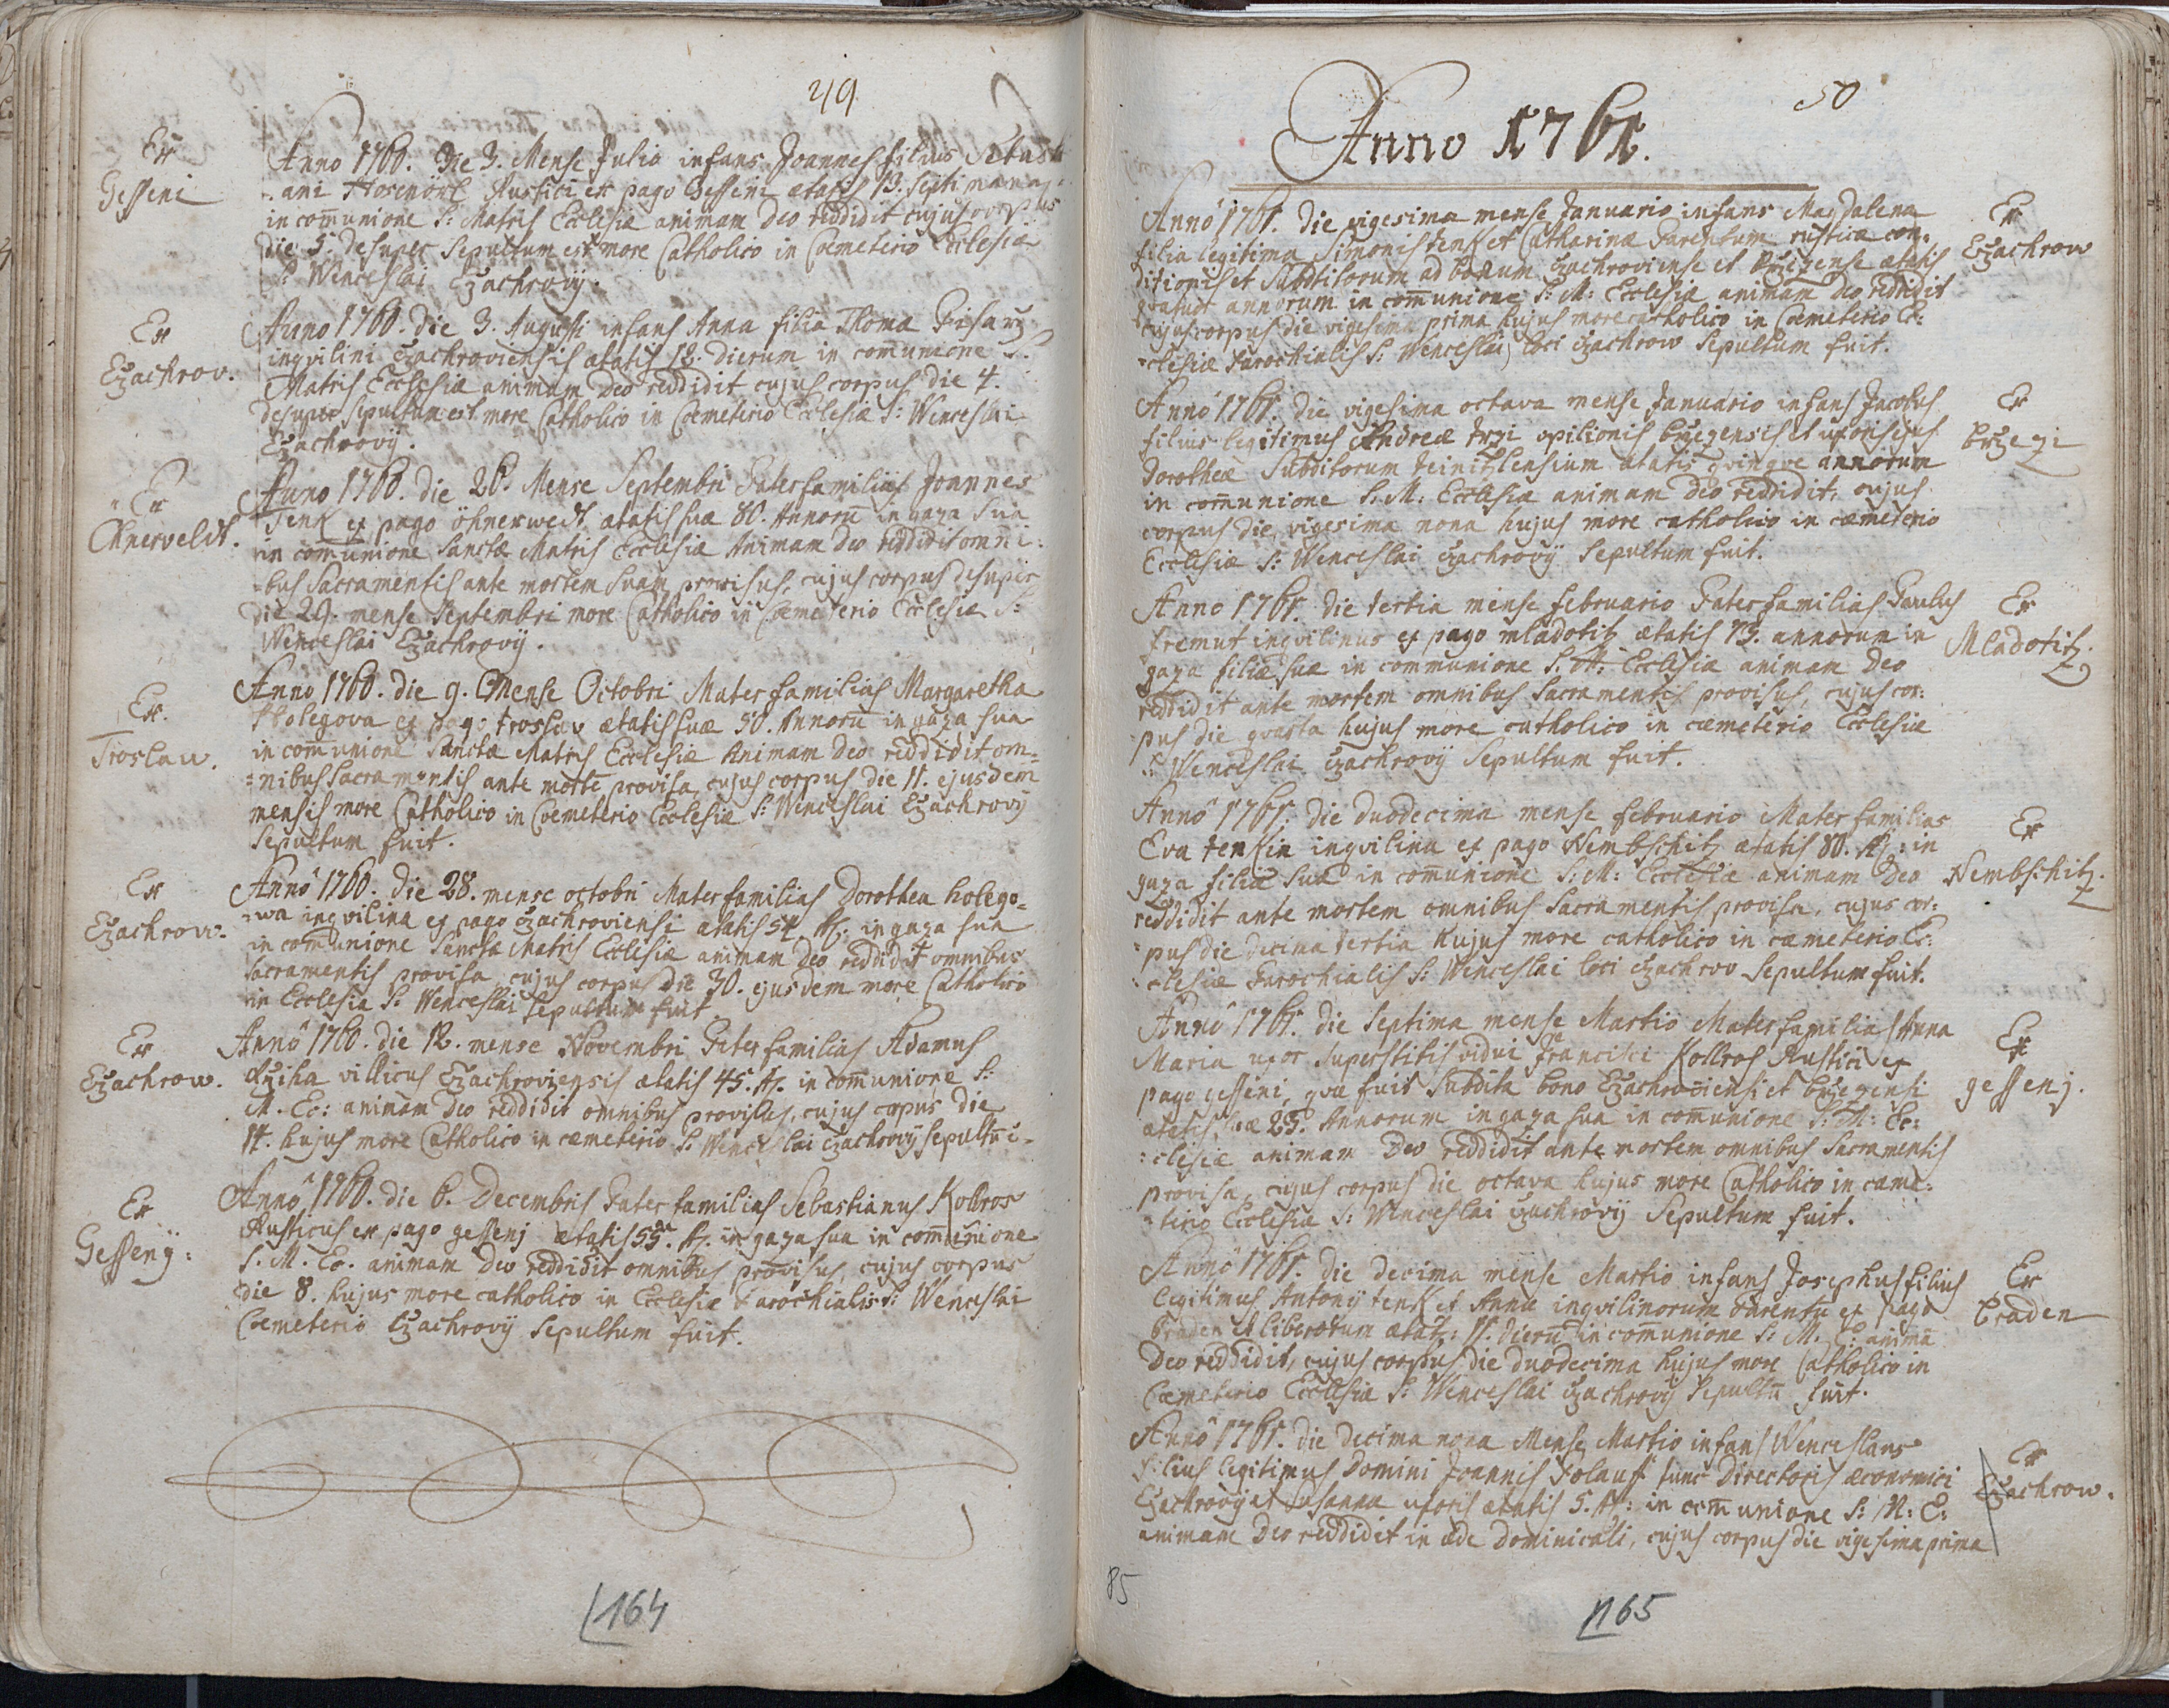 49
Ex
Gesseni
Anno 1760. Die 3. Mense Julio infans Joannes filius Sebasti
ani Hosenörl Rustici ex pago Gesseni ætatis 13. septimanar
in com̄unione S: Matris Ecclesiæ animam Deo reddidit cujus corpus
die 5. desuper Sepultum est more Catholico in Coemeterio Ecclesiæ
S: Wenceslai Czachrovÿ.
Ex
Czachrov.
Anno 1760. die 3. Augusti infans Anna filia Thomæ Pisarz
inqvilini Czachroviensis ætatis 12. dierum in com̄unione S:
Matris Ecclesiæ animam Deo reddidit cujus corpus die 4.
desuper sepultum est more Catholico in Coemeterio Ecclesiæ S: Wenceslai
Czachrovÿ.
Ex
Öhnerveldt.
Anno 1760. die 26. Mense Septembri Paterfamilias Joannes
Tenk ex pago öhnerwedt, ætatis suæ 80. Annorū in gaza sua
in com̄unione Sanctæ Matris Ecclesiæ Animam Deo reddidit omni:
bus Sacramentis ante mortem suam provisus, cujus corpus desuper
die 29. mense Septembri more Catholico in Coemeterio Ecclesiæ S:
Wenceslai Czachrovÿ.
Ex
Troslau.
Anno 1760. die 9. Mense Octobri Materfamilias Margaretha
Holegova ex pago troslav ætatis suæ 50. Annorū in gaza sua
in com̄unione Sanctæ Matris Ecclesiæ Animam Deo reddidit om=
=nibus Sacramentis ante mortē provisa, cujus corpus die 11. ejusdem
mensis more Catholico in Coemeterio Ecclesiæ S: Wenceslai Czachrovÿ
Sepultum fuit.
Ex
Czachrow.
Anno 1760. die 28. mense octobri Materfamilias Dorothea holego=
=wa inqvilina ex pago Czachroviensi ætatis 54 A. in gaza sua
in com̄unione Sanctæ Matris Ecclesiæ animam Deo reddidit omnibus
Sacramentis provisa cujus corpus die 30. ejusdem more Catholico
in Ecclesia S: Wenceslai sepultum fuit
Ex
Czachrow.
Anno 1760. die 12. mense Novembri Paterfamilias Adamus
villicus Czachroviensis ætatis 45. A. in com̄unione S:
M. Ec: animam Deo reddidit omnibus provisus, cujus corpus die
14. hujus more Catholico in cæmeterio S: Wenceslai Czachrovÿ sepultū
Ex
Gessenÿ:
Anno 1760. die 6. Decembris Paterfamilias Sebastianus Kollros
Rusticus ex pago gessenj ætatis 55. A. in gaza sua in com̄unione
S. M. Ec. animam Deo reddidit omnibus provisus, cujus corpus
die 8. hujus more catholico in Ecclesiæ Parochialis S: Wenceslai
Coemeterio Czachrovÿ Sepultum fuit.
164
50
Anno 1761.
Anno 1761. die vigesima mense Januario infans Magdalena
filia legitima Simonis tenk et Catharinæ Parentum rusticæ con:
ditionis et Subditorum ad bonum Czachroviense et Brzezense ætatis
qvatuor annorum in com̄unione S: M: Ecclesiæ animam Deo reddidit
cujus corpus die vigesima prima hujus more catholico in Coemeterio Ec:
clesiæ Parochialis S: Wenceslai loci Czachrow Sepultum fuit.
Ex
Czachrow
Anno 1761. die vigesima octava mense Januario infans Jacobus
filius legitimus Andreæ trzi opilionis brzezensis et uxoris ejus
Dorotheæ Subditorum teinitzlensium ætatis qvinqve annorum
in com̄unione S. M: Ecclesiæ animam Deo reddidit, cujus
corpus die vigesima nona hujus more catholico in cæmeterio
Ecclesiæ S: Wenceslai Czachrovÿ Sepultum fuit.
Ex
brzezi
Anno 1761. die tertia mense februario Paterfamilias Paulus
fremut inqvilinus ex pago mladotitz ætatis 73. annorum in
gaza filiæ suæ in communione S: M: Ecclesiæ animam Deo
reddidit ante mortem omnibus Sacramentis provisus, cujus cor:
pus die qvarta hujus more catholico in cæmeterio Ecclesiæ
S: Wenceslai Czachrovÿ Sepultum fuit.
Ex
Mladotitz.
Anno 1761. die duodecima mense februario Materfamilias
Eva tenkin inqvilina ex pago Nembschitz ætatis 80. A: in
gaza filiæ suæ in com̄unione S: M: Ecclesiæ animam Deo
reddidit ante mortem omnibus Sacramentis provisa, cujus cor:
pus die decima tertia hujus more catholico in cæmeterio Ec:
clesiæ Parochialis S: Wenceslai loci Czachrov Sepultum fuit.
Ex
Nembschitz.
Anno 1761. die Septima mense Martio Materfamilias Anna
Maria uxor superstitis vidui francisci Kollros Rustici ex
pago gesseni, qvæ fuit Subdita bono Czachroviensi et brzezensi
ætatis suæ 25. Annorum in gaza sua in com̄unione S: M: Ec:
:clesiæ animam Deo reddidit ante mortem omnibus Sacramentis
provisa, cujus corpus die octava hujus more Catholico in cæme:
:terio Ecclesiæ S: Wenceslai Czachrovÿ Sepultum fuit.
Ex
gessenj.
Anno 1761. die decima mense Martio infans Josephus filius
legitimus Antonÿ tenk et Annæ inqvilinorum Parentū ex pago
braden et liberorum ætat: 11. dierū in com̄unione S: M. E: animā
Deo reddidit, cujus corpus die duodecima hujus more Catholico in
Cæmeterio Ecclesiæ S: Wenceslai Czachrovÿ Sepultū fuit.
Ex
Braden
Anno 1761. die decima nona Mense Martio infans Wenceslaus
filius legitimus Domini Joannis Folauf tunc Directoris æconomici
Czachrovÿ et Susannæ uxoris ætatis 5. A: in com̄unione S: M: E:
animam Deo reddidit in æde Dominicali, cujus corpus die vigesima prima
Ex
Czachrow.
85
165